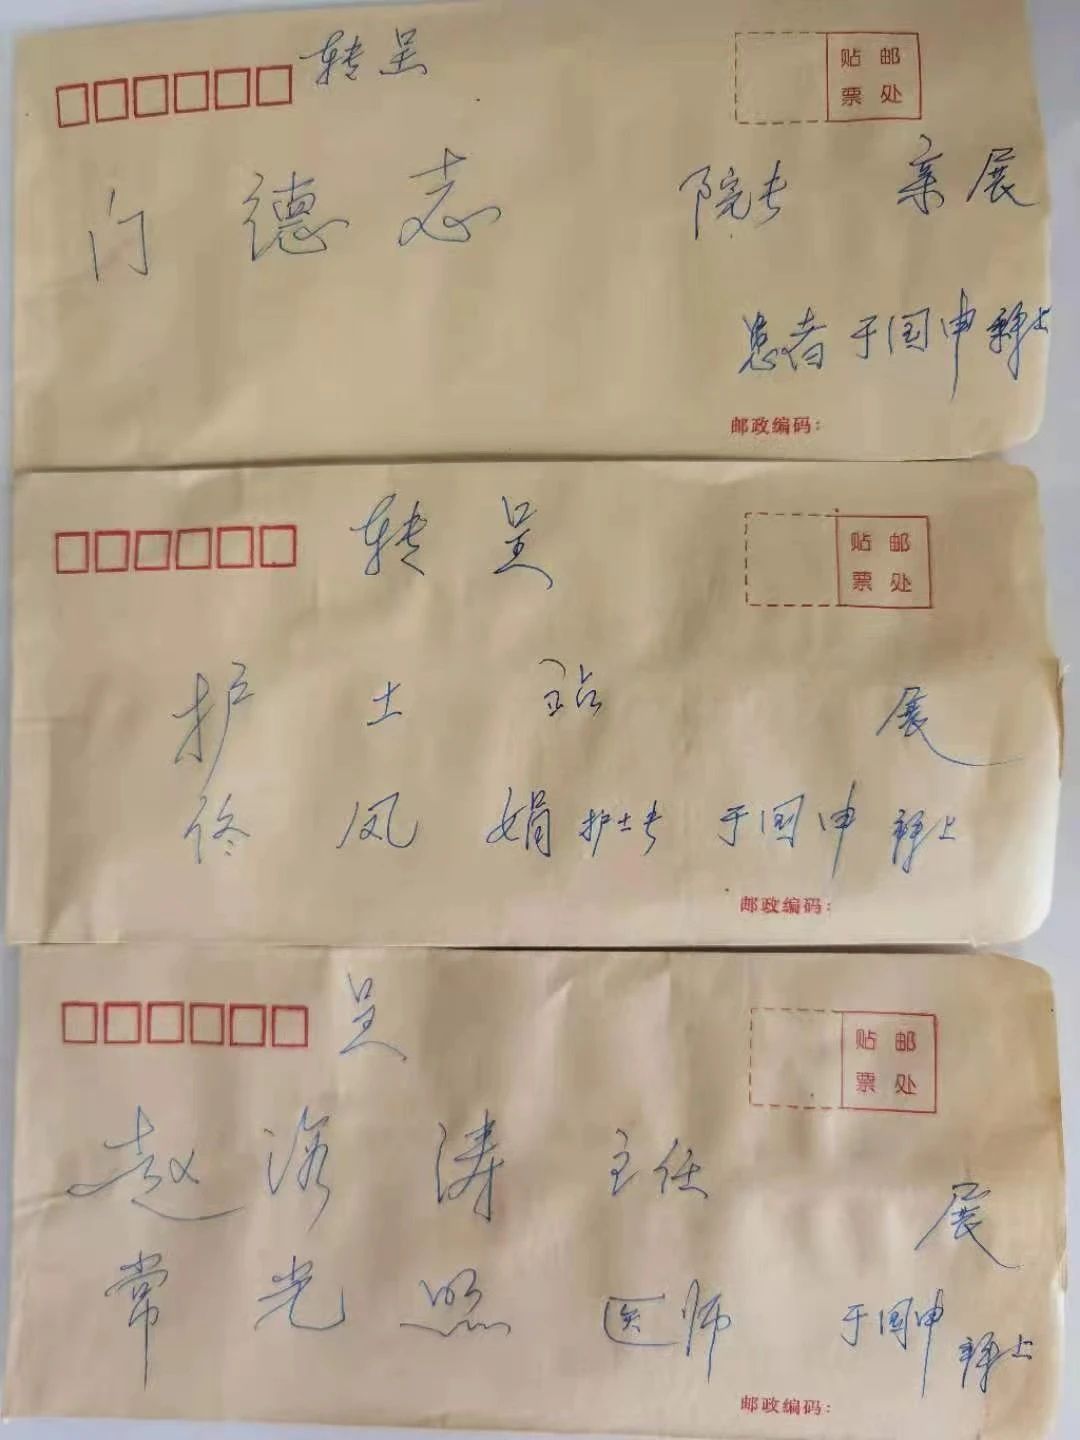 转呈
贴邮
票处
门德志 院长 亲展
患者于国申拜上
邮政编码：
转呈
贴邮
票处
护士站 展
佟凤娟护士长 于国申拜上
邮政编码：
呈
贴邮
票处
赵洛涛 主任 展
常光照 医师 于国申拜上
邮政编码：